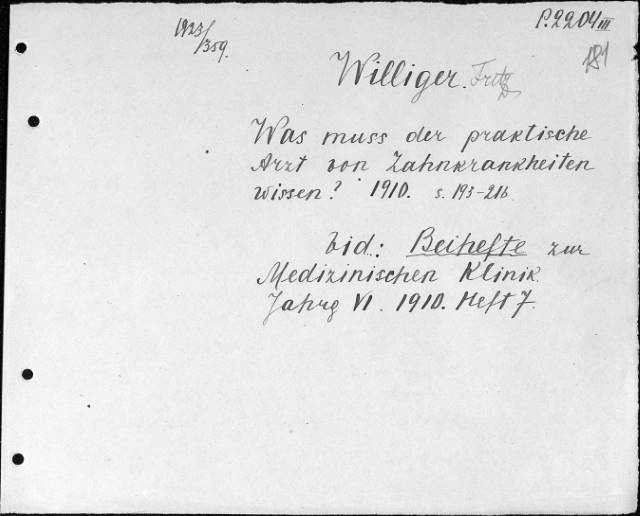 P.2204III
1923/359.
181
Williger. Fritz
Was muss der praktische
Arzt von Zahnkrankheiten
wissen? 1910. s. 193-216
Vid.: Beihefte zur
Medizinischen Klinik
Jahrg VI. 1910. Heft 7.